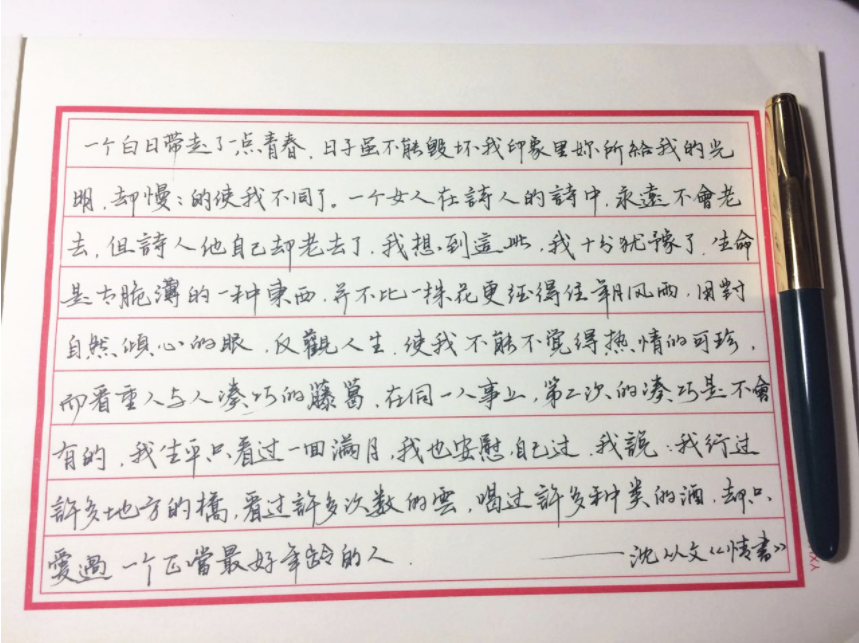 一个白日带走了一点青春,日子虽不能毁坏我印象里妳所給我的光
明,却慢:的使我不同了。一个女人在詩人的詩中,永遠不會老
去,但詩人他自己却老去了,我想到這些,我十分犹豫了,生命
是太脆薄的一种東西,并不比一株花更经得住年月风雨,用對
自然傾心的眼,反觀人生,使我不能不觉得热情的可珍,
而看重人与人凑巧的藤葛,在同一人事上,第二次的凑巧是不會
有的,我生平只看过一回满月,我也安慰自己过,我說:我行过
許多地方的橋,看过許多次数的雲,喝过許多种类的酒,却只
愛過一个正當最好年龄的人.
——沈从文《情書》